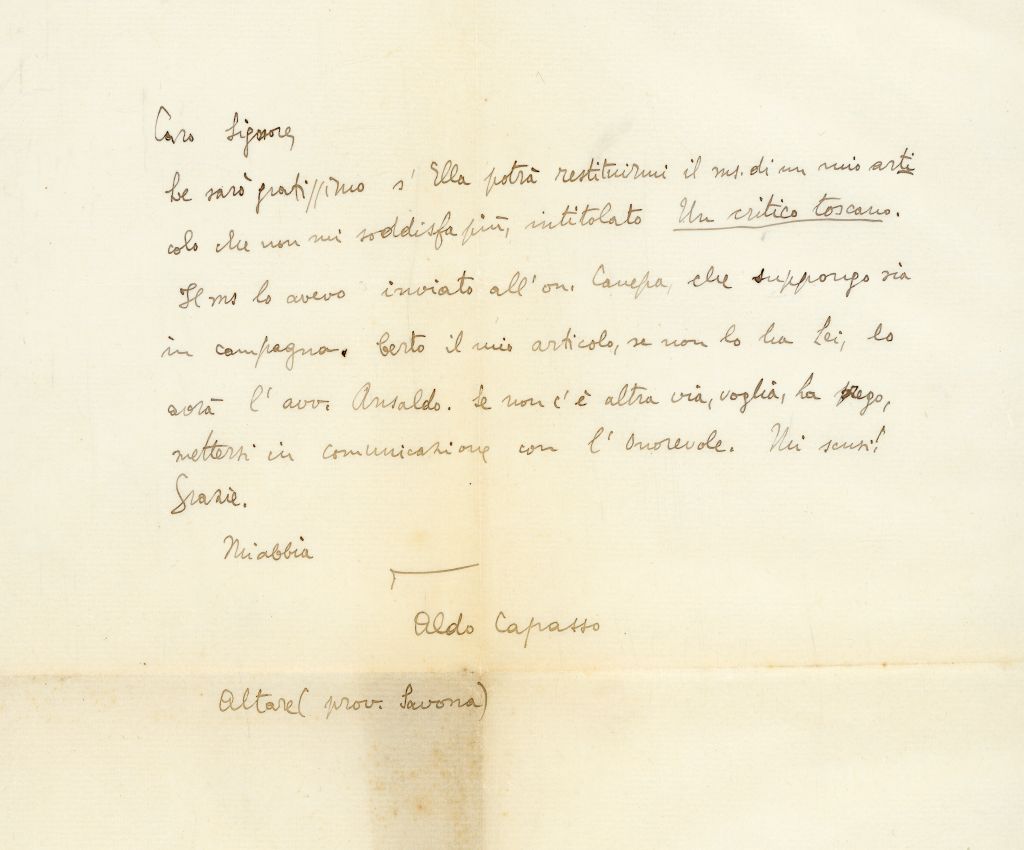 Caro Signore,
Le sarò gratissimo s' Ella potrà restituirmi il ms. di un mio arti
colo che non mi soddisfa più, intitolato Un critico toscano.
Il ms lo avevo inviato all'on. Canepa, che suppongo sia
in campagna. Certo il mio articolo, se non lo ha Lei, lo
avrà l'avv. Ansaldo. Se non c'è altra via, voglia, La prego,
mettersi in comunicazione con l'Onorevole. Mi scusi!
Grazie.
Mi abbia
Aldo Capasso
Altare (prov. Savona)